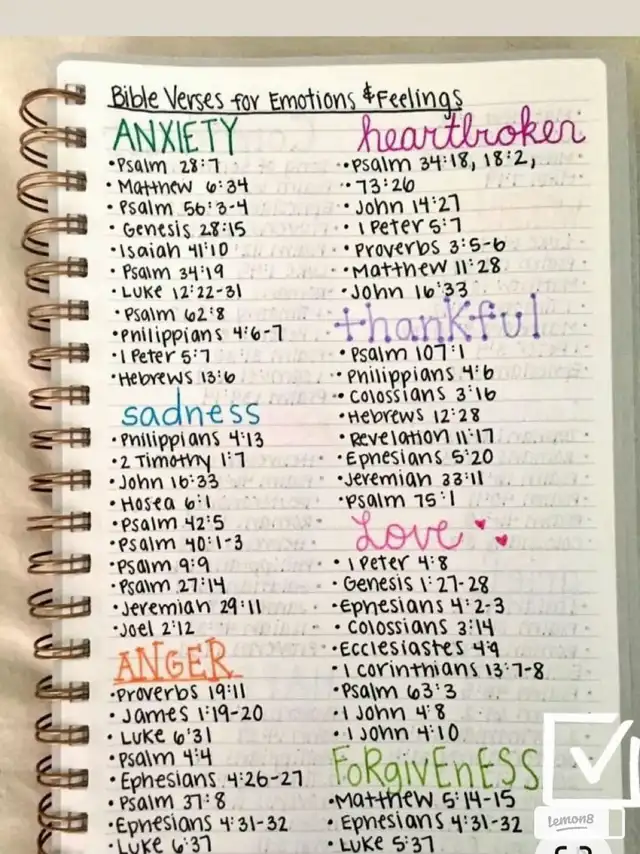 Bible Verses for Emotions & Feelings
ANXIETY
•Psalm 28:7
•Matthew 6:34
•Psalm 56:3-4
•Genesis 28:15
•Isaiah 41:10
•Psalm 34:19
•Luke 12:22-31
•Psalm 62:8
•Philippians 4:6-7
•1 Peter 5:7
•Hebrews 13:6
sadness
•Philippians 4:13
•2 Timothy 1:7
•John 16:33
•Hosea 6:1
•Psalm 42:5
•Psalm 40:1-3
•Psalm 9:9
•Psalm 27:14
•Jeremiah 29:11
•Joel 2:12
ANGER
•Proverbs 19:11
•James 1:19-20
•Luke 6:31
•Psalm 4:4
•Ephesians 4:26-27
•Psalm 37:8
•Ephesians 4:31-32
•Luke 6:37
heartbroken
•Psalm 34:18, 18:2,
•73:26
•John 14:27
•1 Peter 5:7
•Proverbs 3:5-6
•Matthew 11:28
•John 16:33
thankful
•Psalm 107:1
•Philippians 4:6
•Colossians 3:16
•Hebrews 12:28
•Revelation 11:17
•Ephesians 5:20
•Jeremiah 33:11
•Psalm 75:1
Love
•1 Peter 4:8
•Genesis 1:27-28
•Ephesians 4:2-3
•Colossians 3:14
•Ecclesiastes 4:9
•1 Corinthians 13:7-8
•Psalm 63:3
•1 John 4:8
•1 John 4:10
FoRgivEnESS
•Matthew 5:14-15
•Ephesians 4:31-32
•Luke 5:37
Lemon8